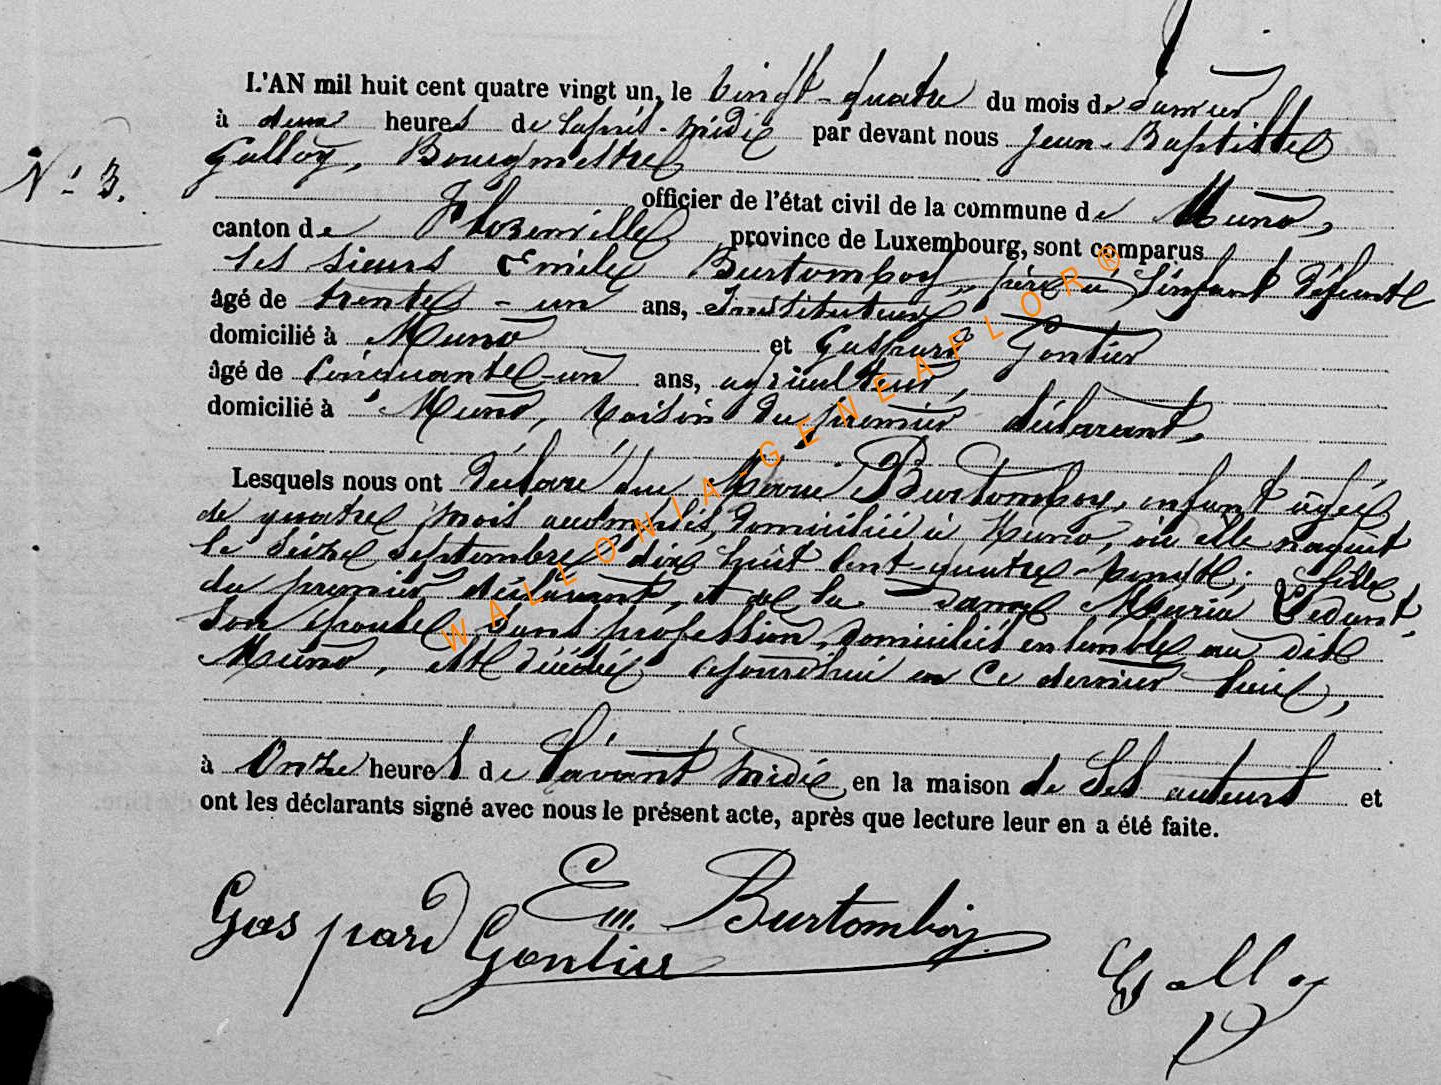 L'AN mil huit cent quatre vingt un, le vingt-quatre du mois de Janvier
à deux heures de l'après-midi par devant nous Jean-Baptiste
N° 3.
Galloy, Bourgmestre
officier de l'état civil de la commune de Muno,
canton de Florenville, province de Luxembourg, sont comparus
les sieurs Emile Burtomboy, père à l'enfant défunte
âgé de trente-un ans, Instituteur
domicilié à Muno et Gaspard Gontier
âgé de cinquante-un ans, agriculteur,
domicilié à Muno, voisin du premier déclarant,
Lesquels nous ont déclaré que Marie Burtomboy, enfant âgée
de quatre mois accomplis, domiciliée à Muno, où elle naquit
le seize Septembre dix huit cent-quatre-vingt; fille
du premier déclarant, et de la Dame Maria Ledent,
son épouse, sans profession, domiciliés ensemble au dit
Muno, est décédée aujourd'hui en ce dernier lieu,
à onze heures de l'avant midi, en la maison de ses auteurs et
ont les déclarants signé avec nous le présent acte, après que lecture leur en a été faite.
Em. Burtomboy
Gaspard Gontier
Galloy
WALLONIA-GENEAFLOR®